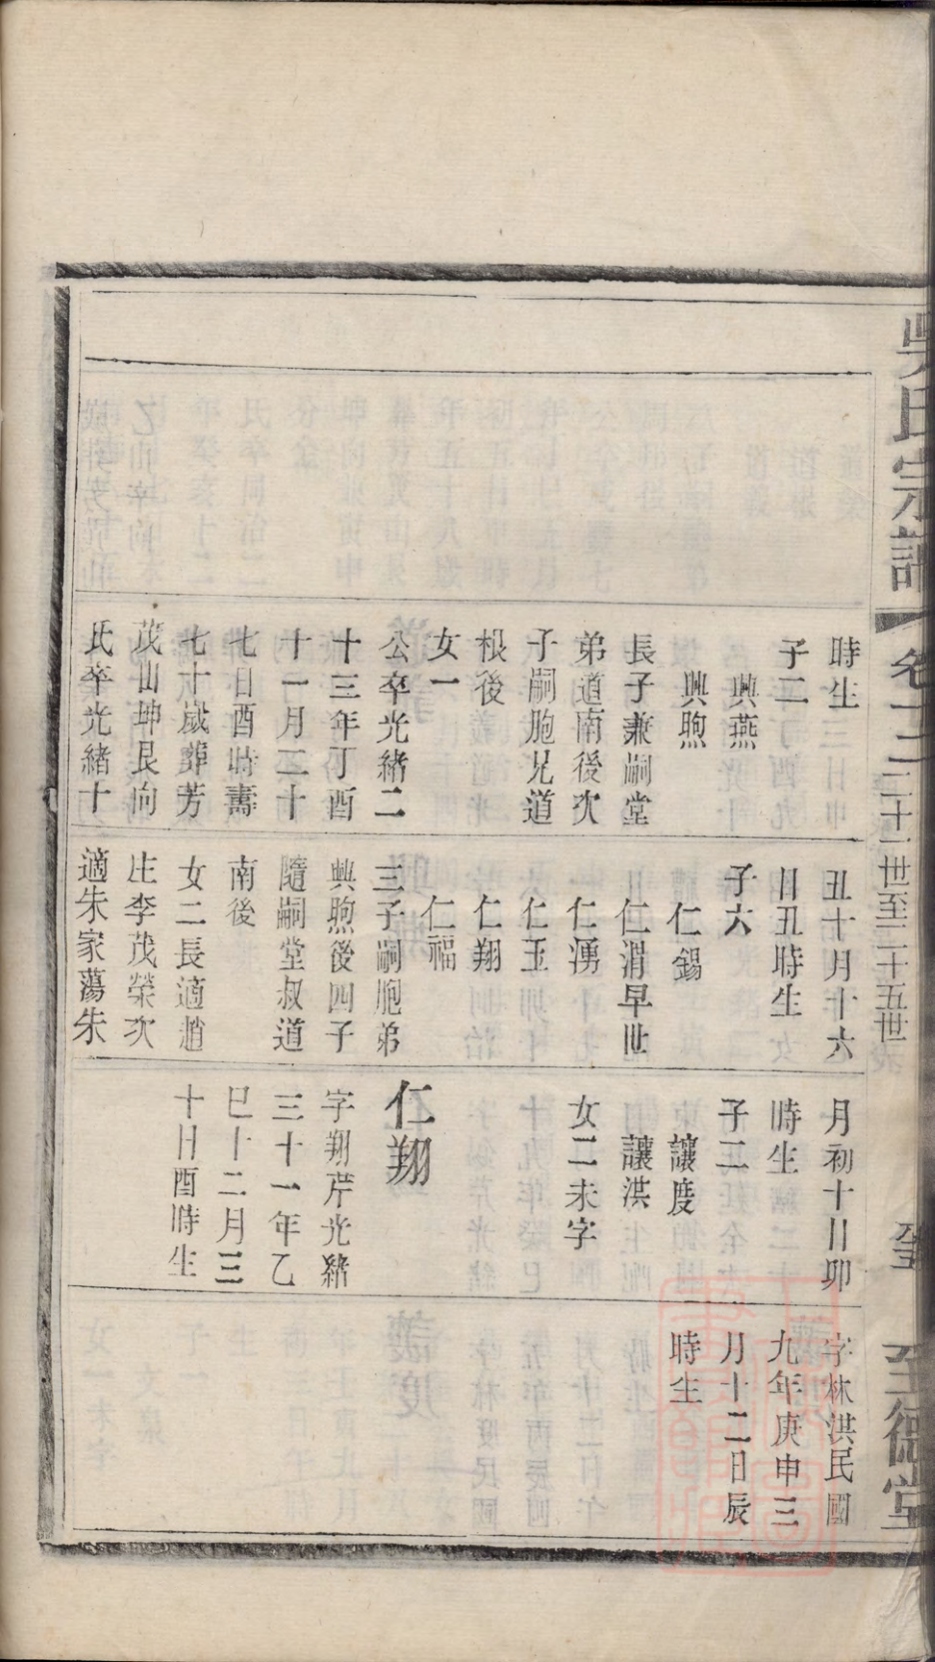 吳氏宗譜
卷十二
二十一世至二十五世
至德堂
時生
子二
興燕
興煦
長子兼嗣堂
弟道南後次
子嗣胞兄道
根後
女一
公卒光緒二
十三年丁酉
十一月二十
七日酉時壽
七十歲葬芳
茂山坤艮向
氏卒光緒十
丑十月十六
日丑時生
子六
仁錫
仁渭早世
仁湧
仁玉
仁翔
仁福
三子嗣胞弟
興煦後四子
隨嗣堂叔道
南後
女二長適趙
庄李茂榮次
適朱家蕩朱
月初十日卯
時生
子二
讓度
讓洪
女二未字
仁翔
字翔芹光緒
三十一年乙
巳十二月三
十日酉時生
字林洪民國
九年庚申三
月十二日辰
時生